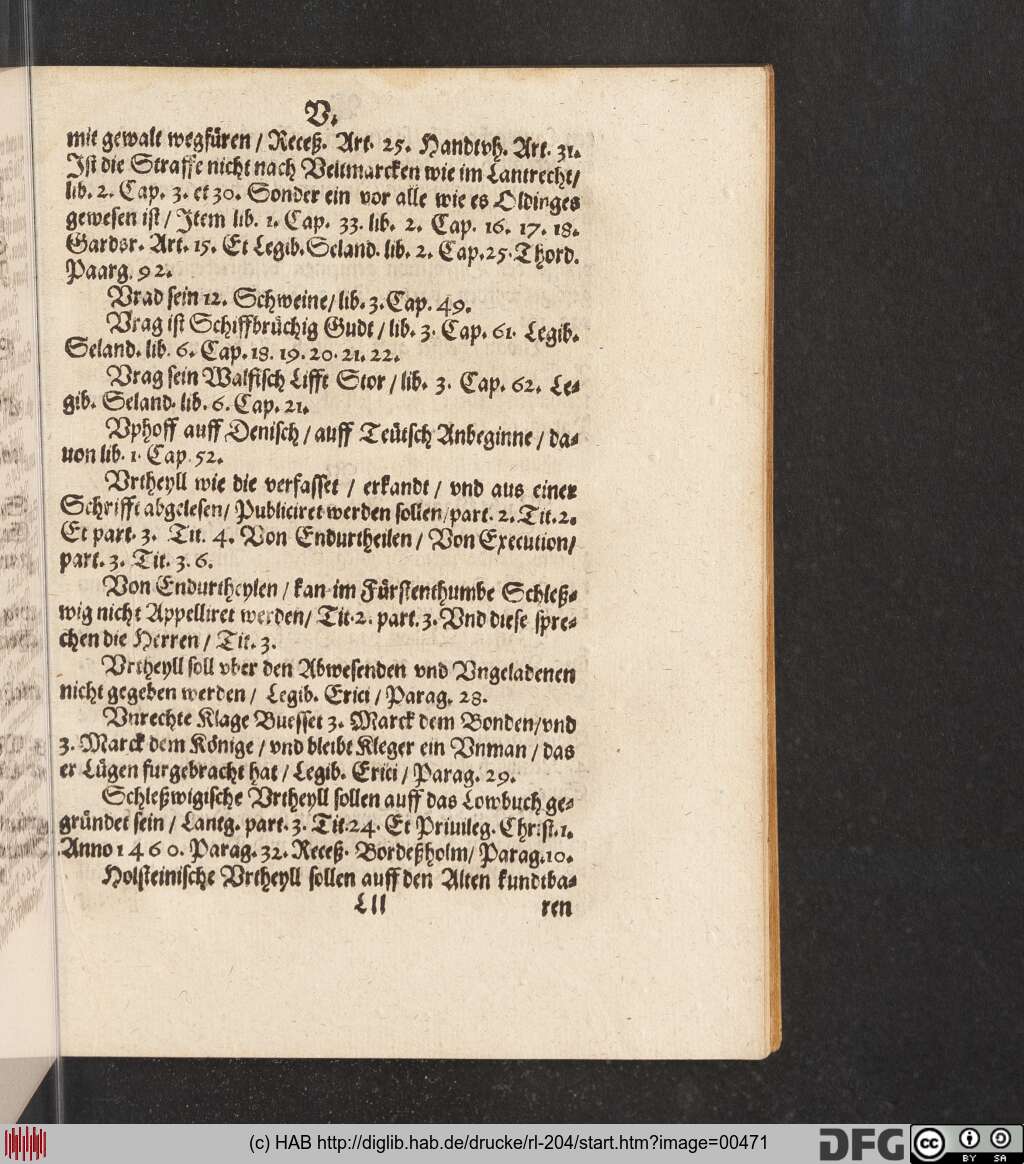 V.
mit gewalt wegfüren / Receß. Art. 25. Handtvh. Art. 31.
Ist die Strasse nicht nach Veltmarcken wie im Lantrecht /
lib. 2. Cap. 3. et 30. Sonder ein vor alle wie es Oldinges
gewesen ist / Item lib. 1. Cap. 33. lib. 2. Cap. 16. 17. 18.
Gardsr. Art. 15. Et Legib. Seland. lib. 2. Cap. 25. Thord.
Paarg. 92.
Vrad sein 12. Schweine / lib. 3. Cap. 49.
Vrag ist Schiffbrüchig Gudt / lib. 3. Cap. 61. Legib.
Seland. lib. 6. Cap. 18. 19. 20. 21. 22.
Vrag sein Walfisch Lifft Stor / lib. 3. Cap. 62. Le=
gib. Seland. lib. 6. Cap. 21.
Vphoff auff Denisch / auff Teütsch Anbeginne / da=
uon lib. 1. Cap. 52.
Vrtheyll wie die verfasset / erkandt / vnd aus einer
Schrifft abgelesen / Publiciret werden sollen / part. 2. Tit. 2.
Et part. 3. Tit. 4. Von Endurtheilen / Von Execution /
part. 3. Tit. 3. 6.
Von Endurtheylen / kan im Fürstenthumbe Schleß=
wig nicht Appelliret werden / Tit. 2. part. 3. Vnd diese spre=
chen die Herren / Tit. 3.
Vrtheyll soll vber den Abwesenden vnd Vngeladenen
nicht gegeben werden / Legib. Erici / Parag. 28.
Vnrechte Klage Buesset 3. Marck dem Bonden / vnd
3. Marck dem Könige / vnd bleibt Kleger ein Vnman / das
er Lügen furgebracht hat / Legib. Erici / Parag. 29.
Schleßwigische Vrtheyll sollen auff das Lowbuch ge=
gründet sein / Lantg. part. 3. Tit. 24. Et Priuileg. Christ. 1.
Anno 1460. Parag. 32. Receß. Bordeßholm / Parag. 10.
Holsteinische Vrtheyll sollen auff den Alten kundtba=
Lll ren
(c) HAB http://diglib.hab.de/drucke/rl-204/start.htm?image=00471
DFG
cc BY SA